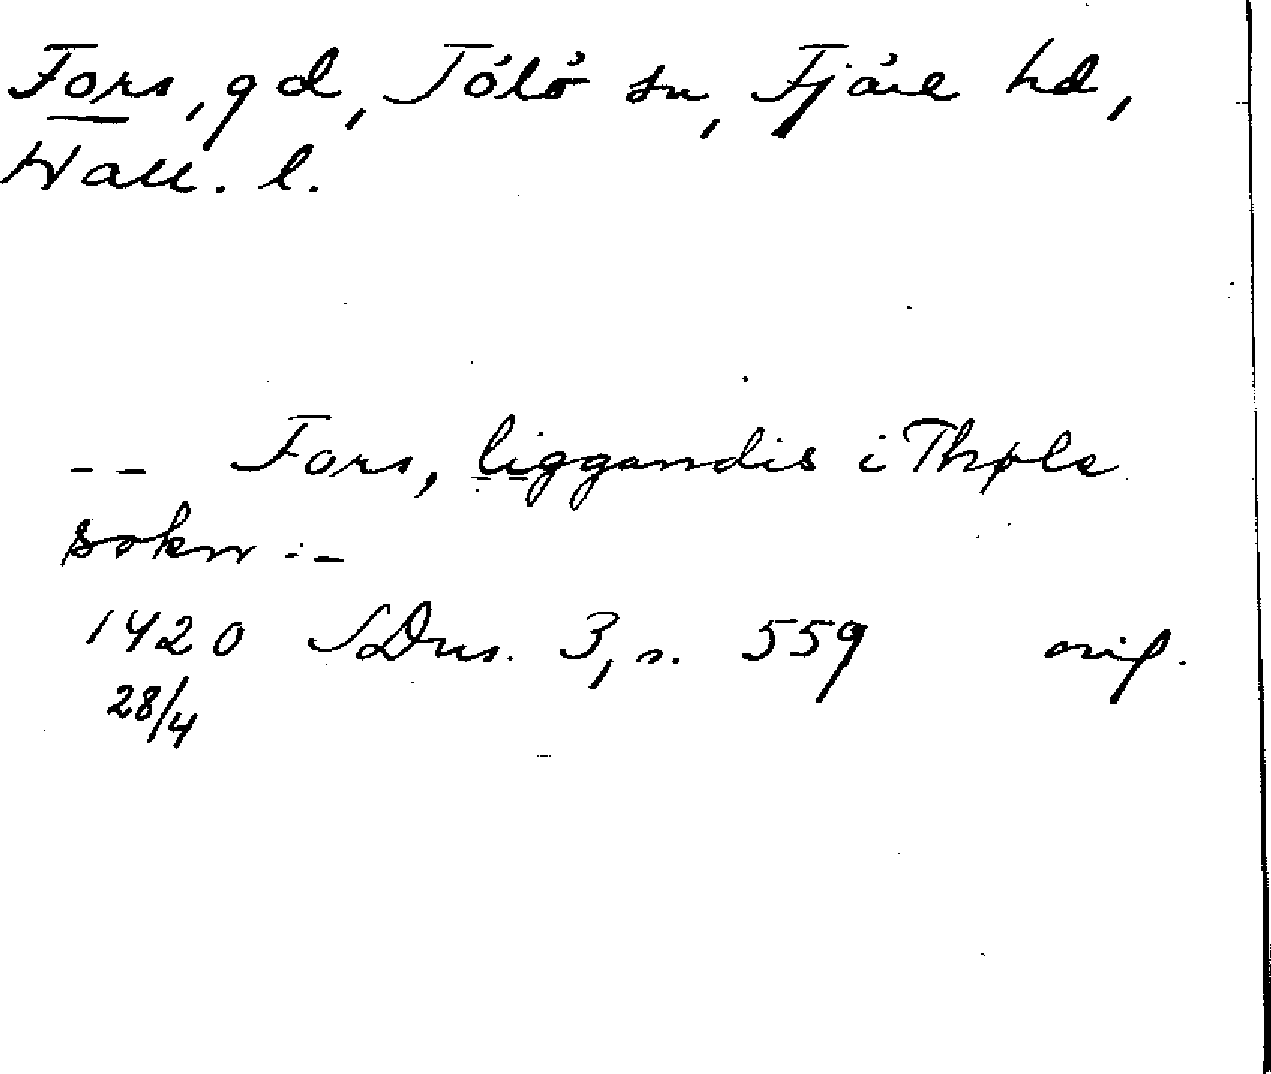 Fors, gd, Tölö sn, Fjäre hd,
Hall. l.
-- Fors, liggandis i Thøla
sokn --
1420 SDns. 3, s. 559 orig.
28/4